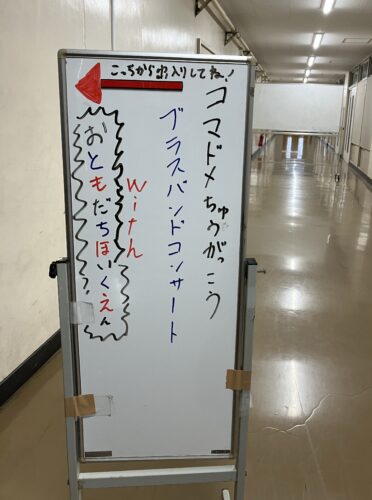 こっちから出入りしてね!
コマドメちゅうがっこう
ブラスバンドコンサート
With
おともだちほいくえん